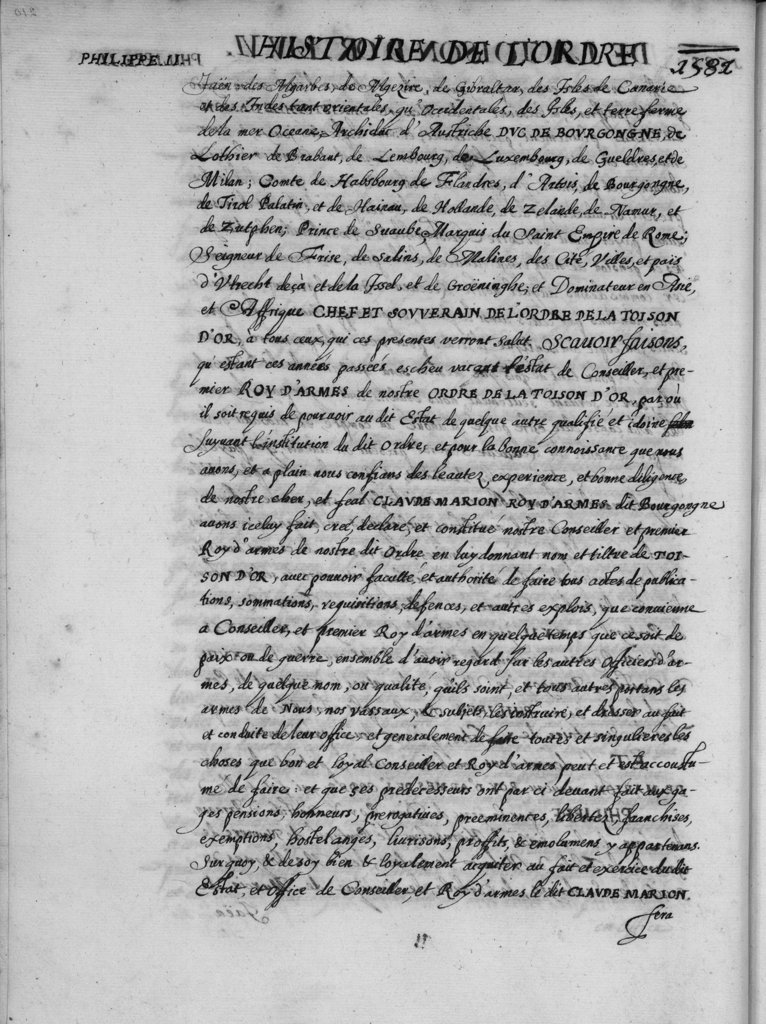 PHILIPPE IIII
HISTOIRE DE L'ORDRE
1581
Jaën des Algarbes, de Algezire, de Gibraltar, des Isles de Canarie
et des Indes tant orientales, qu'Occidentales, des Isles, et terre ferme
de la mer Oceane, Archiduc d'Austriche DVC DE BOVRGONGNE, de
Lothier de Brabant, de Lembourg, de Luxembourg, de Gueldres, et de
Milan; Comte de Habsbourg de Flandres, d'Artois, de Bourgongne,
de Tirol Palatin, et de Hainau, de Hollande, de Zelande, de Namur, et
de Zutphen; Prince de Suaube, Marquis du Saint Empire de Rome;
Seigneur de Frise, de Salins, de Malines, des Cité, Villes, et pais
d'Vtrecht deçà et de la Issel, et de Groëninghe; et Dominateur en Asie,
et Affrique CHEF ET SOVVERAIN DE L'ORDRE DE LA TOISON
D'OR, à tous ceux, qui ces presentes verront salut. Scauoir faisons,
qu'estant ces années passées escheu vacant l'éstat de Conseiller, et pre-
mier ROY D'ARMES de nostre ORDRE DE LA TOISON D'OR, par où
il soit requis de pouruoir au dit Estat de quelque autre qualifié et idoine
suyuant l'institution du dit Ordre, et pour la bonne connoissance que nous
auons, et a plain nous confians des leautez, experience, et bonne diligence
de nostre cher, et feal CLAVDE MARION ROY D'ARMES dit Bourgongne
auons iceluy fait, creé, declaré, et constitué nostre Conseiller et premier
Roy d'armes de nostre dit Ordre en luy donnant nom et tiltre de TOI-
SON D'OR, auec pouuoir faculté, et authorité de faire tous actes de publica-
tions, sommations, requisitions, defences, et autres explois, que conuienne
a Conseiller, et premier Roy d'armes en quelque temps que ce soit de
paix ou de guerre, ensemble d'auoir regard sur les autres Officiers d'ar-
mes, de quelque nom, ou qualité, qu'ils soint, et tous autres portans les
armes de Nous, nos vassaux, & subjets, les instruire, et dresser au fait
et conduite de leur office, et generalement de faire toutes et singulieres les
choses que bon et loyal Conseiller et Roy d'armes peut et est accoustu-
mé de faire: et que ses predecesseurs ont par ci deuant fait aux ga-
ges pensions, honneurs, prerogatiues, preeminences, libertez, franchises,
exemptions, hostelanges, liurisons, proffits, & emolumens y appartenans.
Sur quoy, & de soy bien & loyalement acquiter au fait et exercice du dit
Estat, et Office de Conseiller, et Roy d'armes le dit CLAVDE MARION
sera